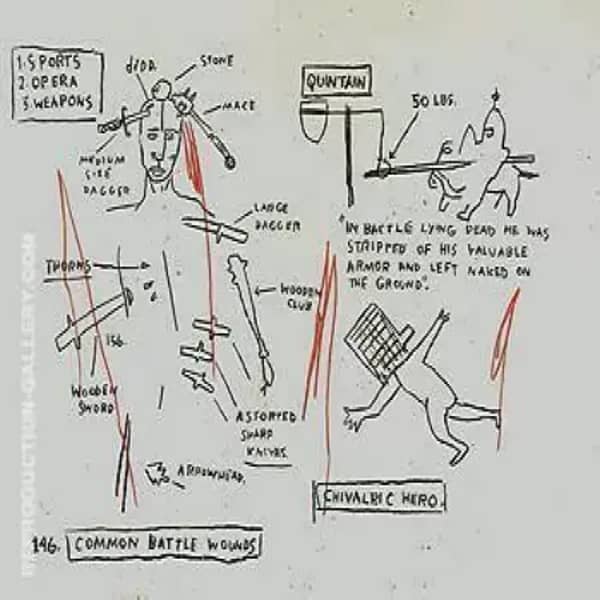 1. SPORTS
2. OPERA
3. WEAPONS
STONE
MACE
MEDIUM
SIZE
DAGGER
LARGE
DAGGER
THORNS
WOODEN
CLUB
156.
WOODEN
SWORD
ASSORTED
SHARP
KNIVES
ARROWHEAD.
146. COMMON BATTLE WOUNDS
QUINTAIN
50 LBS.
"IN BATTLE LYING DEAD HE WAS
STRIPPED OF HIS VALUABLE
ARMOR AND LEFT NAKED ON
THE GROUND".
CHIVALRIC HERO.
REPRODUCTION-GALLERY.COM